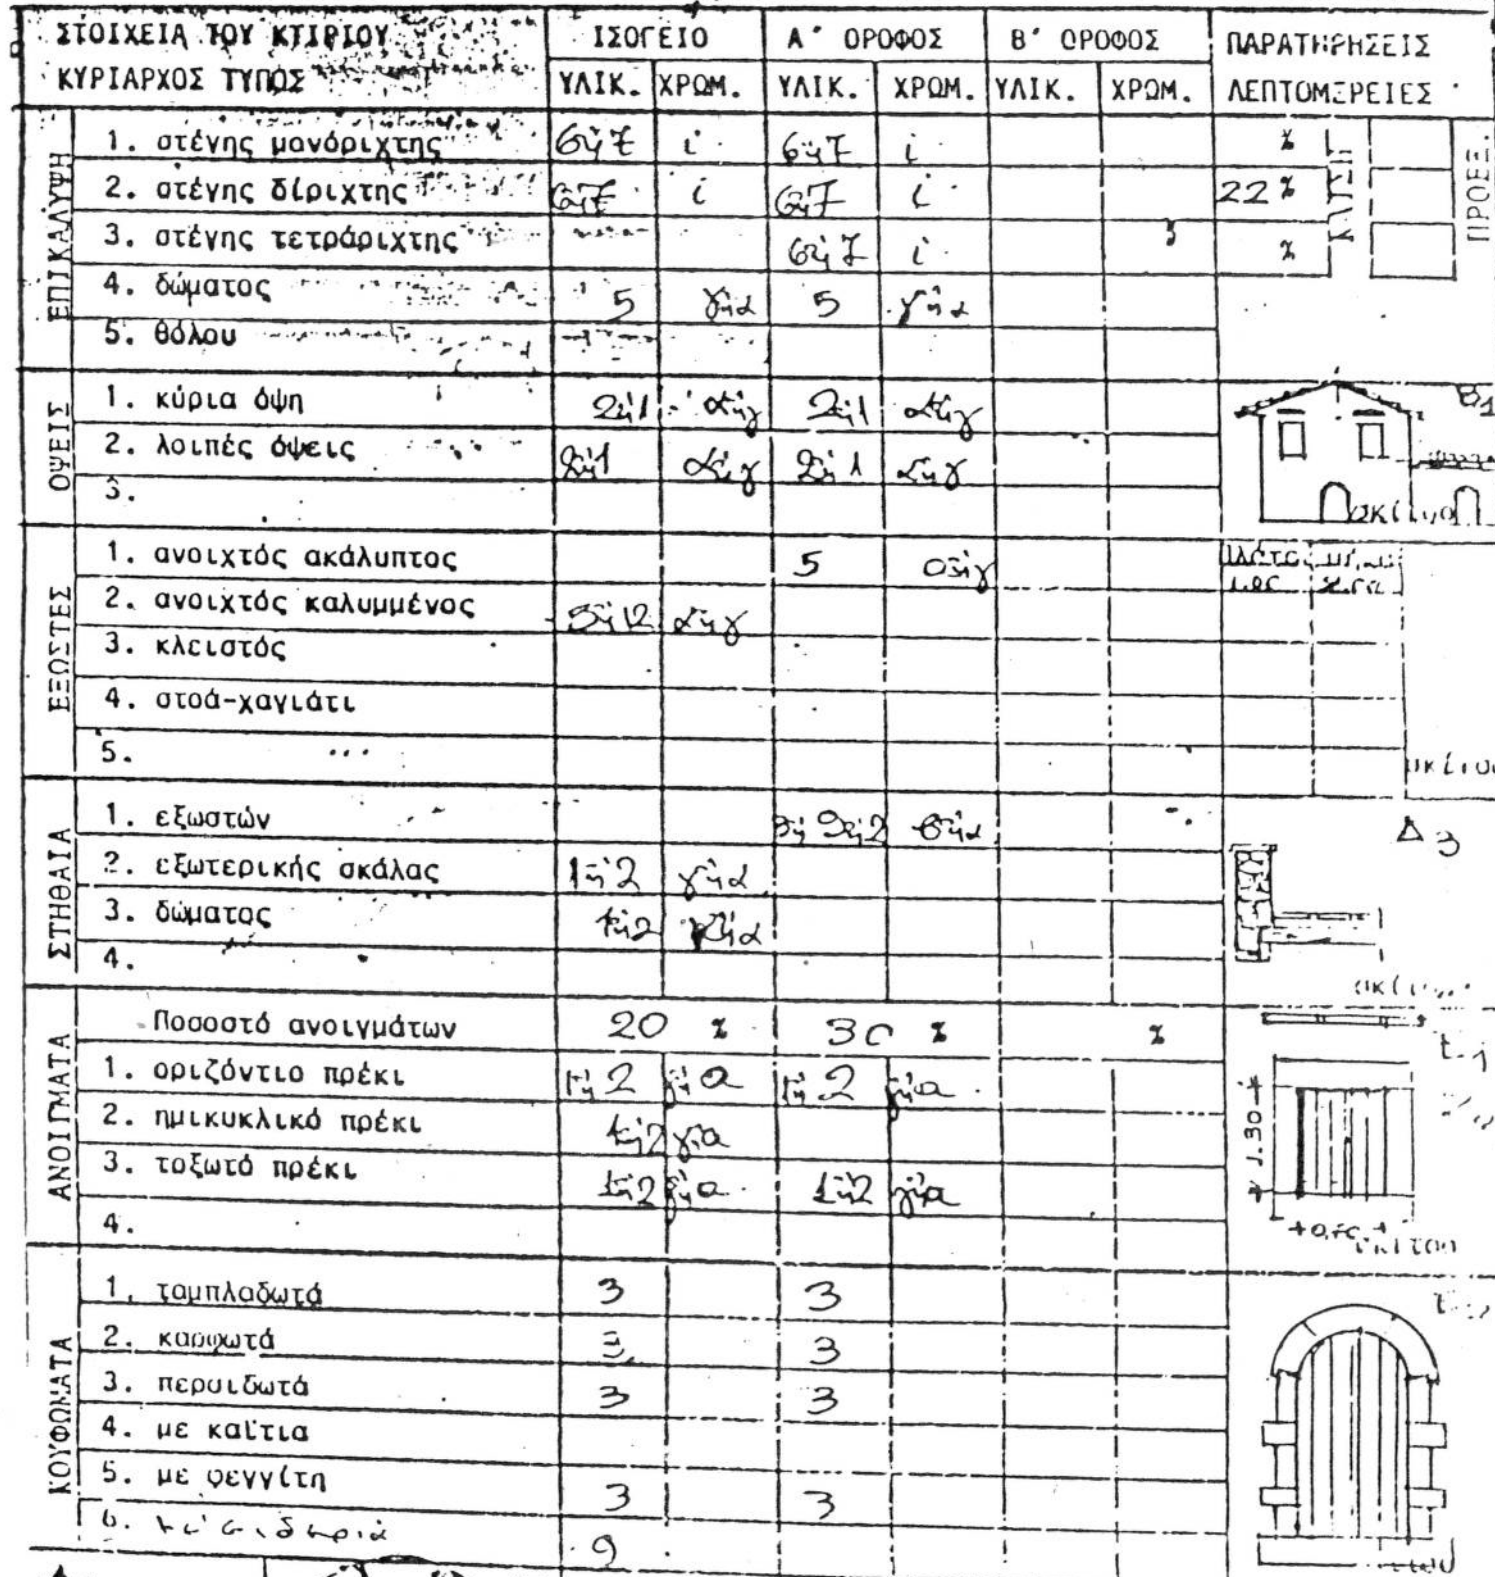 ΣΤΟΙΧΕΙΑ ΤΟΥ ΚΤΙΡΙΟΥ ΙΣΟΓΕΙΟ Α' ΟΡΟΦΟΣ Β' ΟΡΟΦΟΣ ΠΑΡΑΤΗΡΗΣΕΙΣ
ΚΥΡΙΑΡΧΟΣ ΤΥΠΟΣ ΥΛΙΚ. ΧΡΩΜ. ΥΛΙΚ. ΧΡΩΜ. ΥΛΙΚ. ΧΡΩΜ. ΛΕΠΤΟΜΕΡΕΙΕΣ
ΕΠΙΚΑΛΥΨΗ
1. στέγης μονόριχτης 6ή7 i 6ή7 i %
2. στέγης δίριχτης 6ή7 i 6ή7 i 22%
3. στέγης τετράριχτης 6ή7 i %
ΚΛΙΣΗ
ΠΡΟΕΞ.
4. δώματος 5 γήα 5 γήα
5. θόλου
ΟΨΕΙΣ
1. κύρια όψη 2ή1 αήγ 2ή1 αήγ Β1
2. λοιπές όψεις 2ή1 αήγ 2ή1 αήγ
3.
ΕΞΩΣΤΕΣ
1. ανοιχτός ακάλυπτος 5
2. ανοιχτός καλυμμένος αήγ
3. κλειστός
4. στοά-χαγιάτι
5. ...
ΣΤΗΘΑΙΑ
1. εξωστών Δ3
2. εξωτερικής σκάλας 1ή2 γήα
3. δώματος 1ή2 γήα
4.
ΑΝΟΙΓΜΑΤΑ
Ποσοστό ανοιγμάτων 20 % 30 % %
1. οριζόντιο πρέκι 1ή2 γήα 1ή2 γήα
2. ημικυκλικό πρέκι 1ή2 γήα
3. τοξωτό πρέκι 1ή2 γήα 1ή2 γήα
4.
1.30
ΚΟΥΦΩΜΑΤΑ
1. ταμπλαδωτά 3 3
2. καρφωτά 3 3
3. περσιδωτά 3 3
4. με καΐτια
5. με φεγγίτη 3 3
6. 9